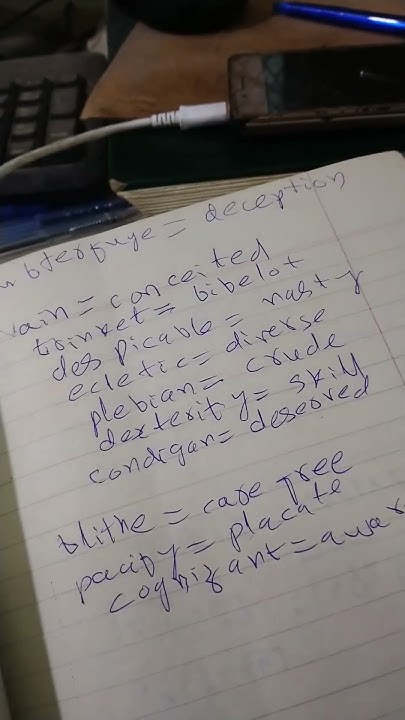 ubterfuye = deception
vain = conceited
trinket = bibelot
despicable = nasty
ecletic = diverse
plebian = crude
dexterity = skill
condigan = deserved
blithe = care free
pacify = placate
cognizant = awar